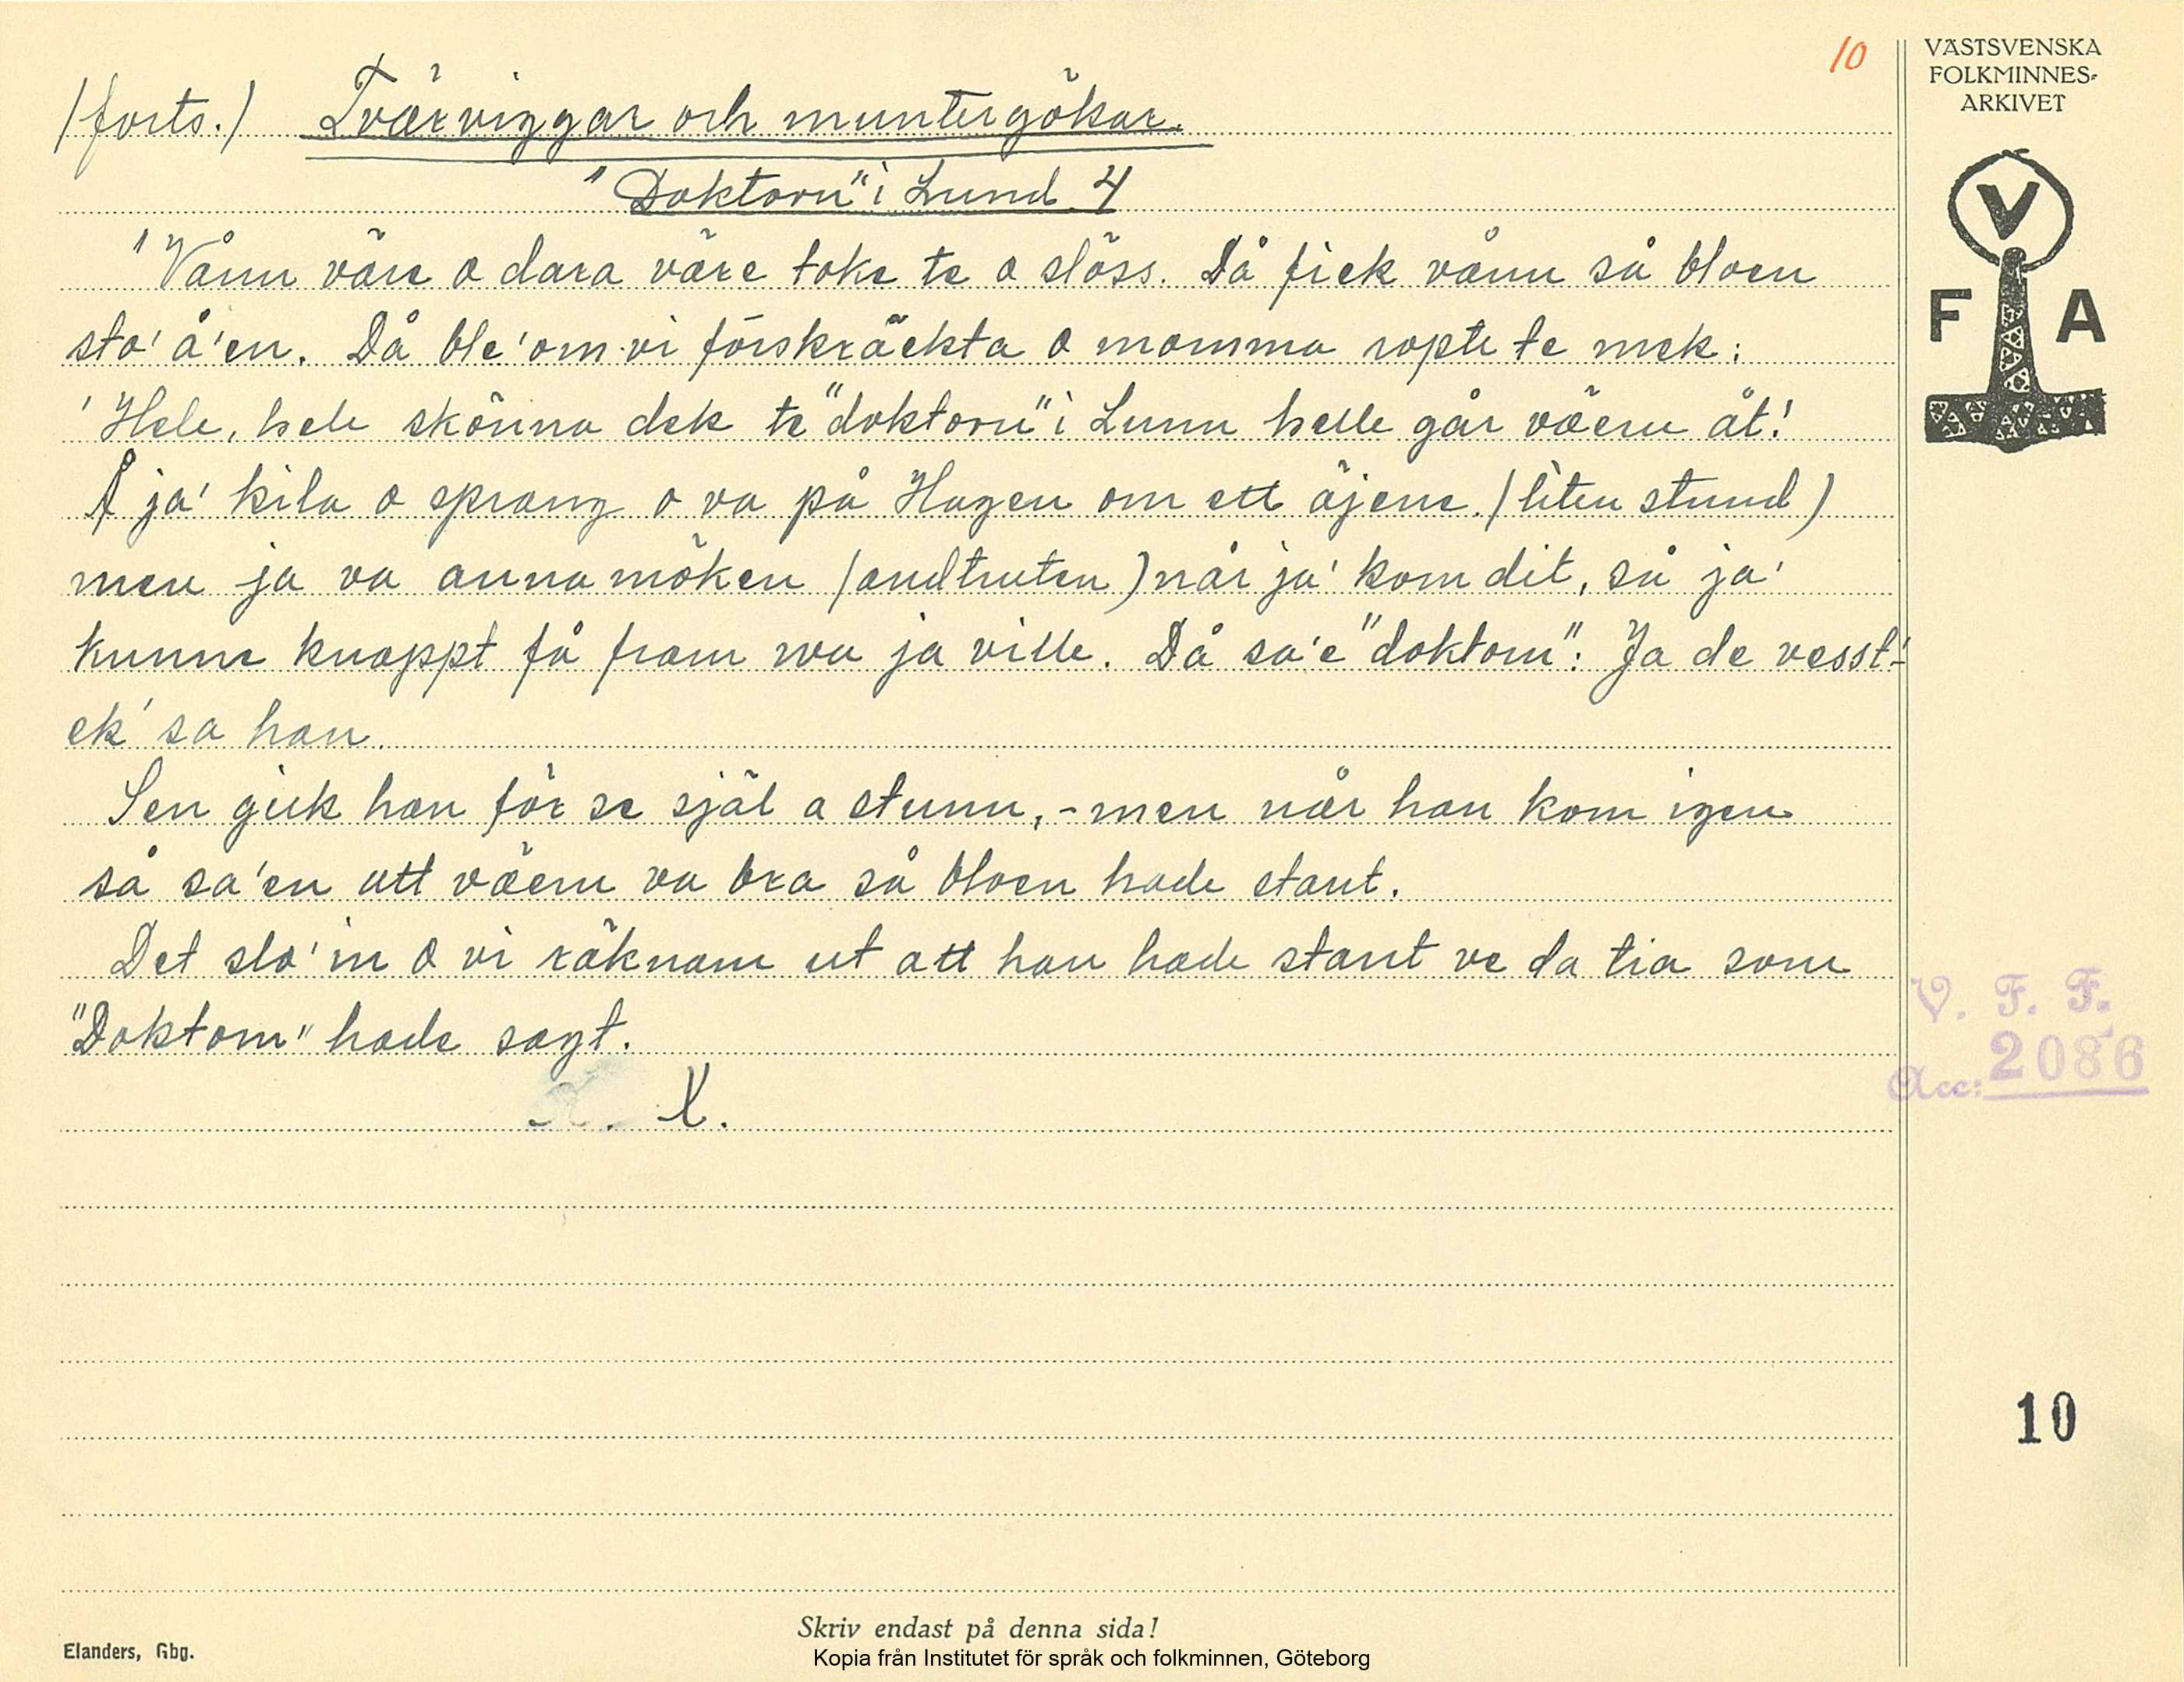 10
VÄSTSVENSKA
FOLKMINNES-
ARKIVET
/forts./ Tvärviggar och muntergökar.
"Doktorn" i Lund. 4
V
F A
"Vånn väre o dara väre toke te o slåss. Då fick vånn så bloen
sto' å'en. Då ble'om vi förskräckta o momma ropte te mek:
'Hele, hele skönna dek te "doktorn" i Lunn helle går väern åt!
Å ja' kila o sprang o va på Hagen om ett äjene. (liten stund)
men ja va anna möken (andtruten) når ja' kom dit, så ja'
kunne knappt få fram wa ja ville. Då sa'e "doktorn": Ja de vesst'-
ek' sa han.
Sen gick han för se själ a stunn, - men når han kom igen
så sa'en att väern va bra så bloen hade stant.
Det slo' in o vi räknam ut att han hade stant ve da tia som
"Doktorn" hade sagt.
X.
V. F. F.
Acc: 2086
10
Skriv endast på denna sida!
Elanders, Gbg.
Kopia från Institutet för språk och folkminnen, Göteborg